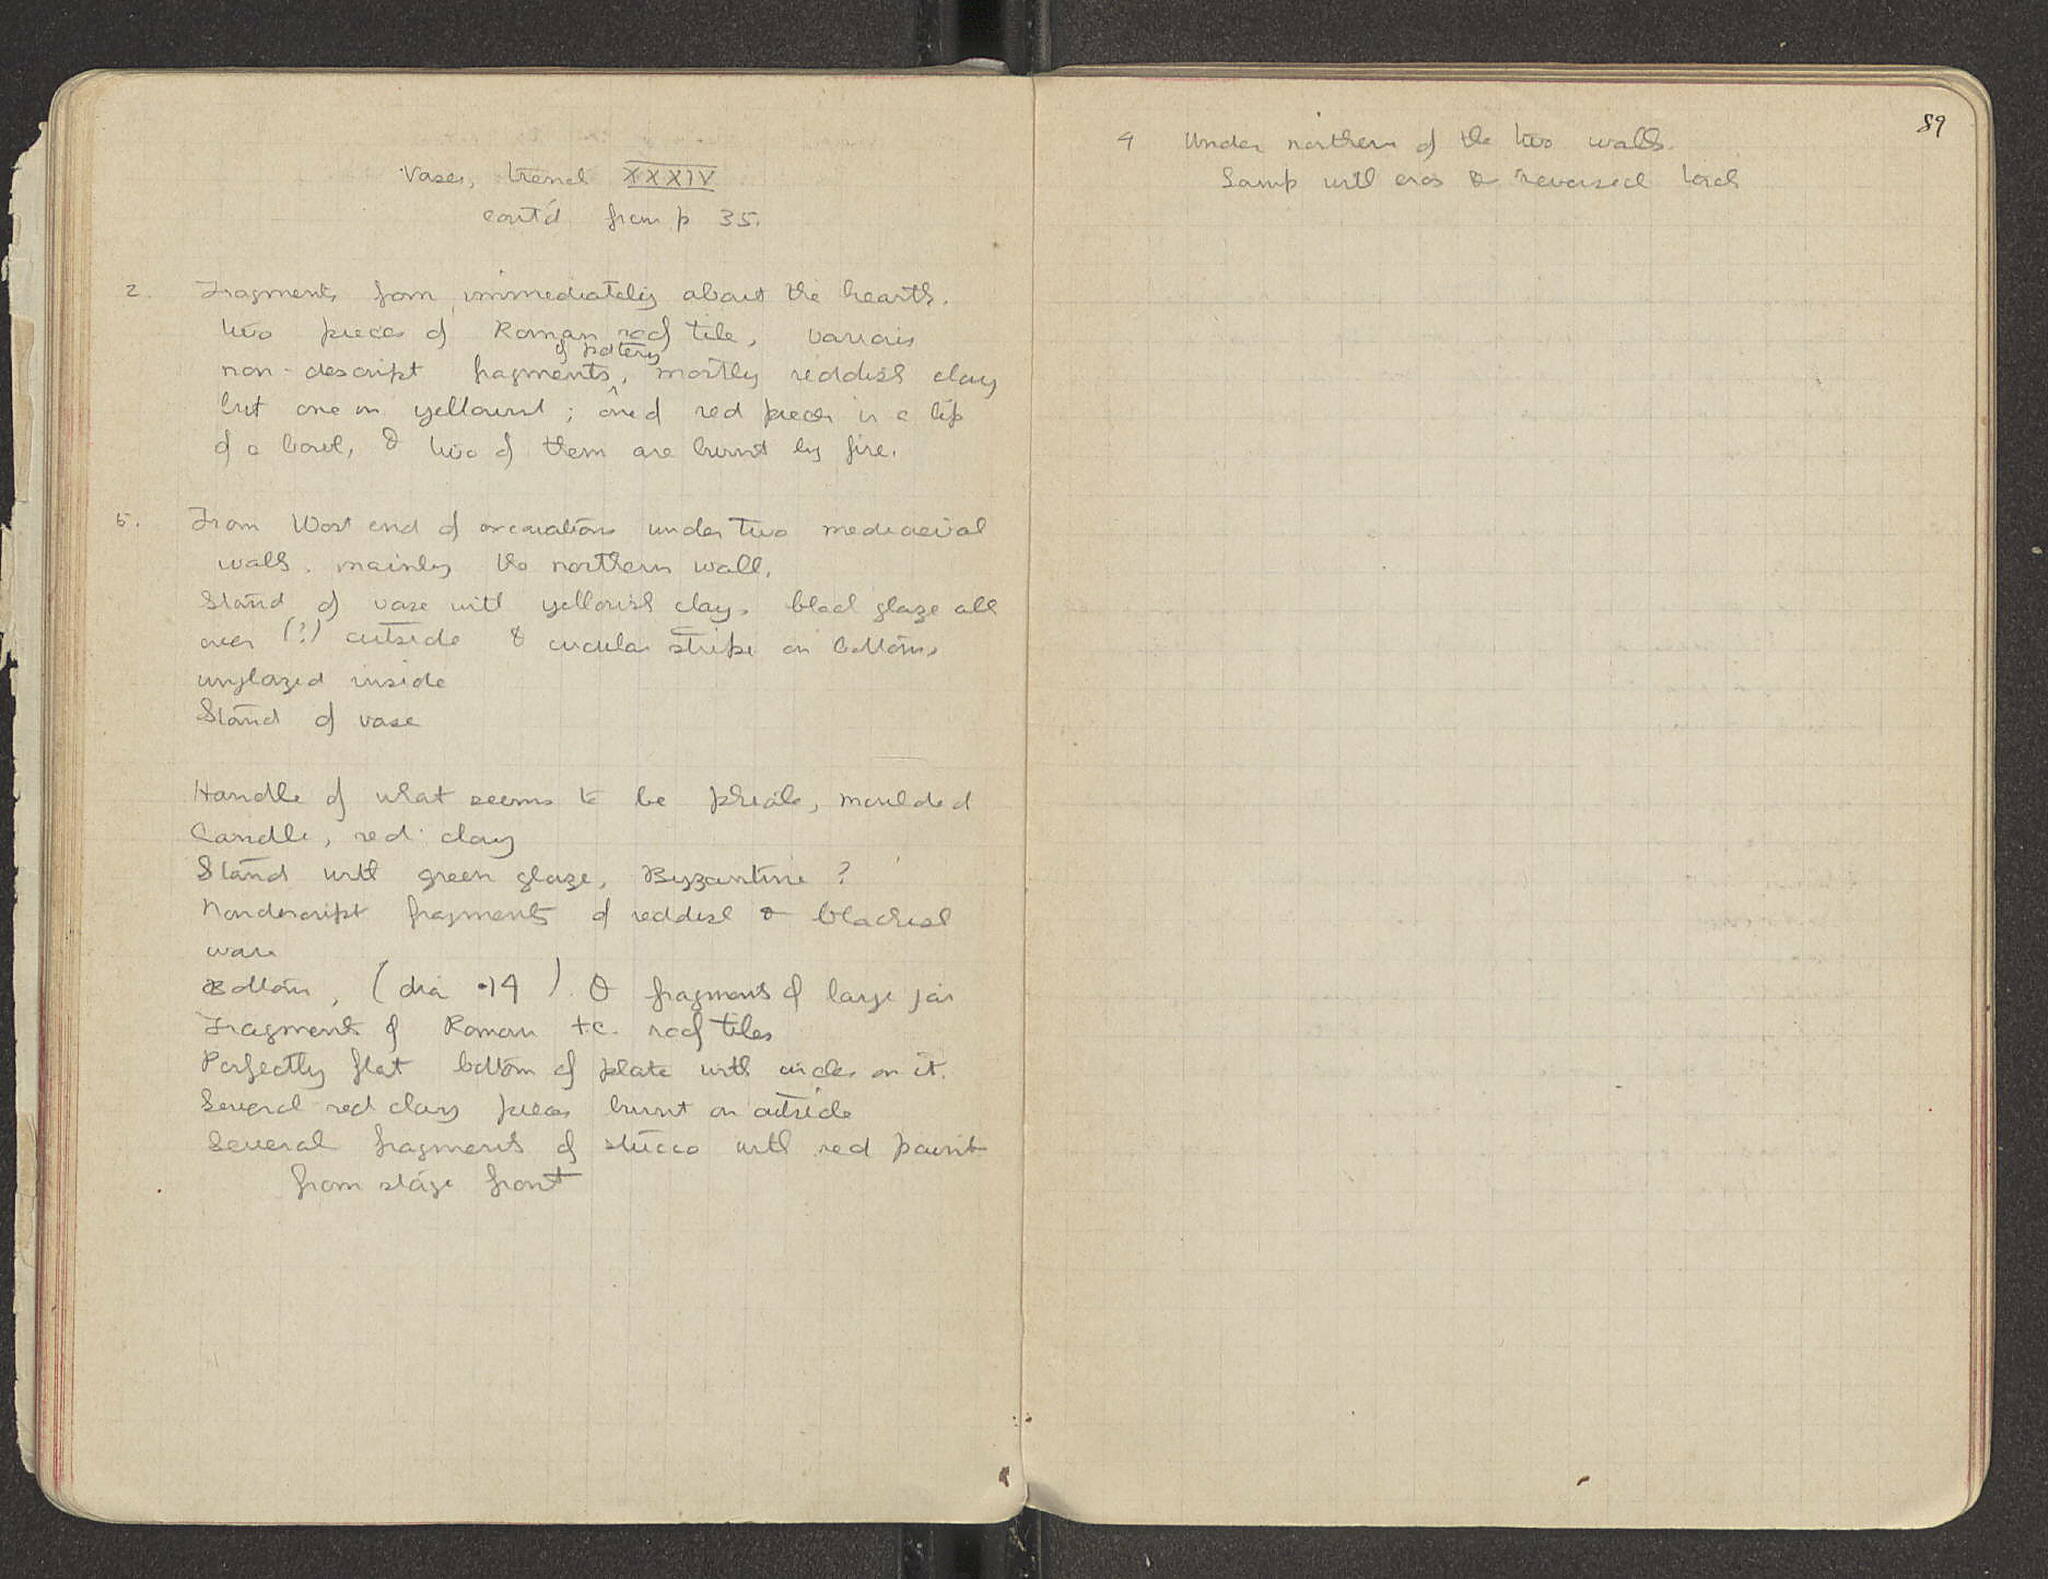 Vases, trench XXXIV
cont'd from p 35.
2. Fragments from immediately about the hearth.
two pieces of Roman roof tile, various
of pottery
non-descript fragments, mostly reddish clay
but one on yellowish; one of red pieces is a lip
of a bowl, & two of them are burnt by fire.
5. From West end of excavations under two mediaeval
walls, mainly the northern wall.
Stand of vase with yellowish clay, black glaze all
over (?) outside & circular stripe on bottom,
unglazed inside
Stand of vase
Handle of what seems to be phiale, moulded
handle, red clay
Stand with green glaze, Byzantine?
Nondescript fragments of reddish & blackish
ware
Bottom, (dia .14) & fragments of large jar
Fragments of Roman t.c. roof tiles
Perfectly flat bottom of plate with circles on it.
Several red clay pieces burnt on outside
Several fragments of stucco with red paint
from stage front
89
4 Under northern of the two walls.
Lamp with eros & reversed torch